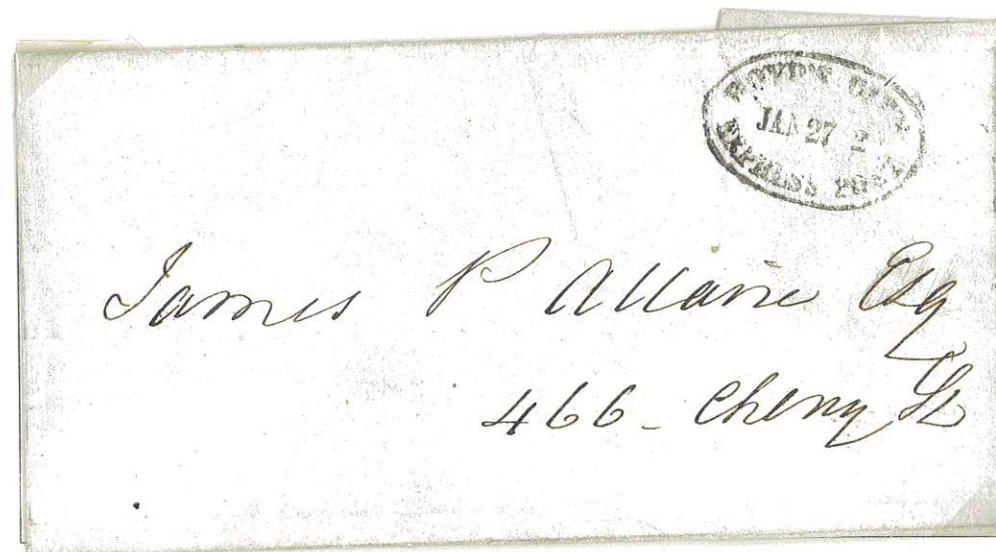 BOYD'S CITY
JAN 27 2
EXPRESS POST
James P Allaire Esq
466 - Cherry St